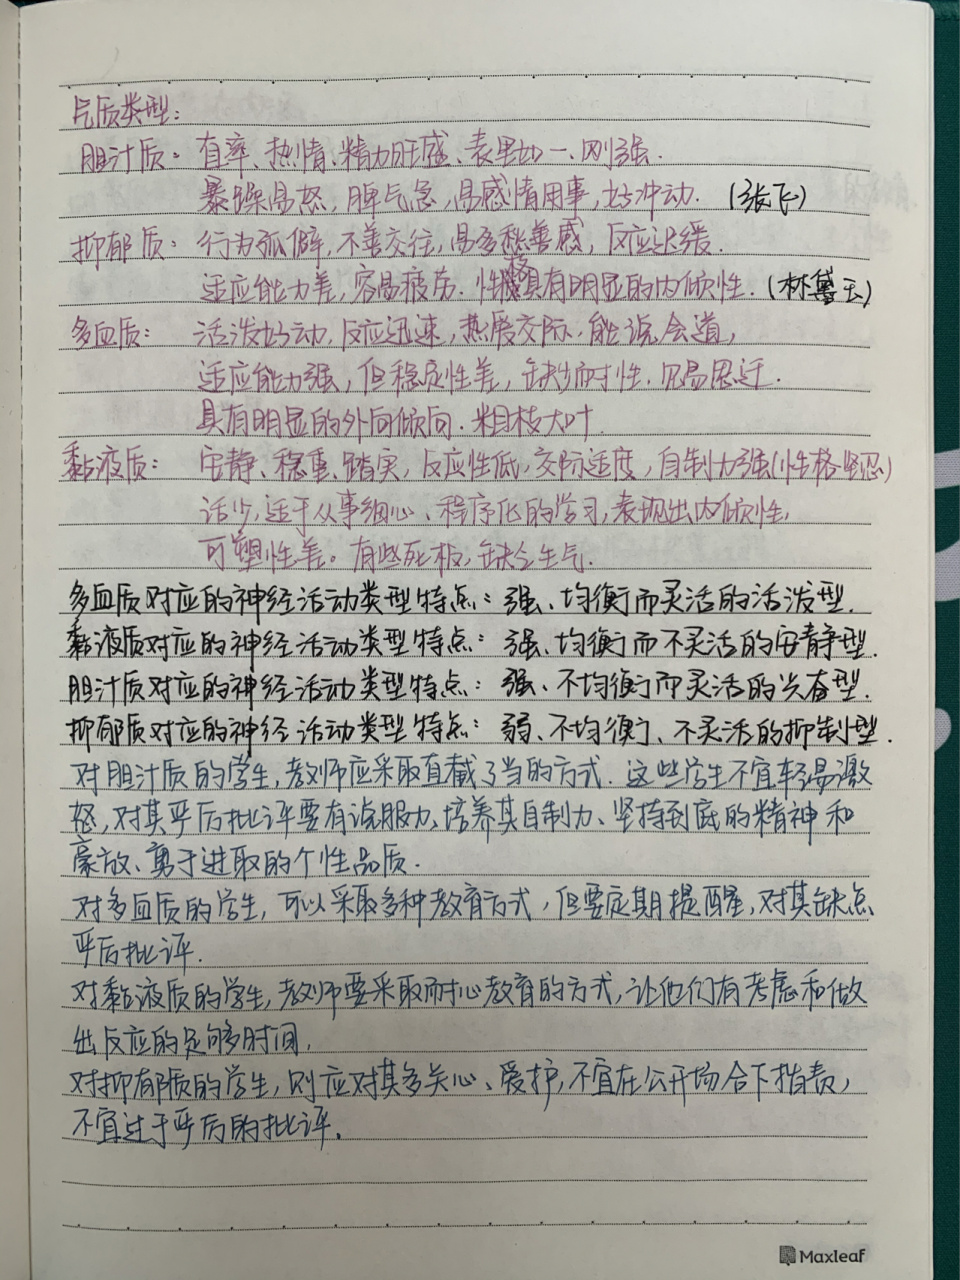 气质类型:
胆汁质: 直率、热情、精力旺盛、表里如一、刚强.
暴躁易怒, 脾气急, 易感情用事, 好冲动. (张飞)
抑郁质: 行为孤僻, 不善交往, 易多愁善感, 反应迟缓.
适应能力差, 容易疲劳. 性格具有明显的内倾性. (林黛玉)
多血质: 活泼好动, 反应迅速, 热爱交际, 能说会道,
适应能力强, 但稳定性差, 缺少耐性, 见异思迁.
具有明显的外向倾向. 粗枝大叶.
黏液质: 安静、稳重、踏实, 反应性低, 交际适度, 自制力强(性格坚忍)
话少, 适于从事细心、程序化的学习, 表现出内倾性,
可塑性差。有些死板, 缺乏生气.
多血质对应的神经活动类型特点: 强、均衡而灵活的活泼型.
黏液质对应的神经活动类型特点: 强、均衡而不灵活的安静型.
胆汁质对应的神经活动类型特点: 强、不均衡而灵活的兴奋型.
抑郁质对应的神经活动类型特点: 弱、不均衡、不灵活的抑制型.
对胆汁质的学生, 教师应采取直截了当的方式. 这些学生不宜轻易激
怒, 对其严厉批评要有说服力, 培养其自制力、坚持到底的精神和
豪放、勇于进取的个性品质.
对多血质的学生, 可以采取多种教育方式, 但要定期提醒, 对其缺点
严厉批评.
对黏液质的学生, 教师要采取耐心教育的方式, 让他们有考虑和做
出反应的足够时间.
对抑郁质的学生, 则应对其多关心、爱护, 不宜在公开场合下指责,
不宜过于严厉的批评.
Maxleaf